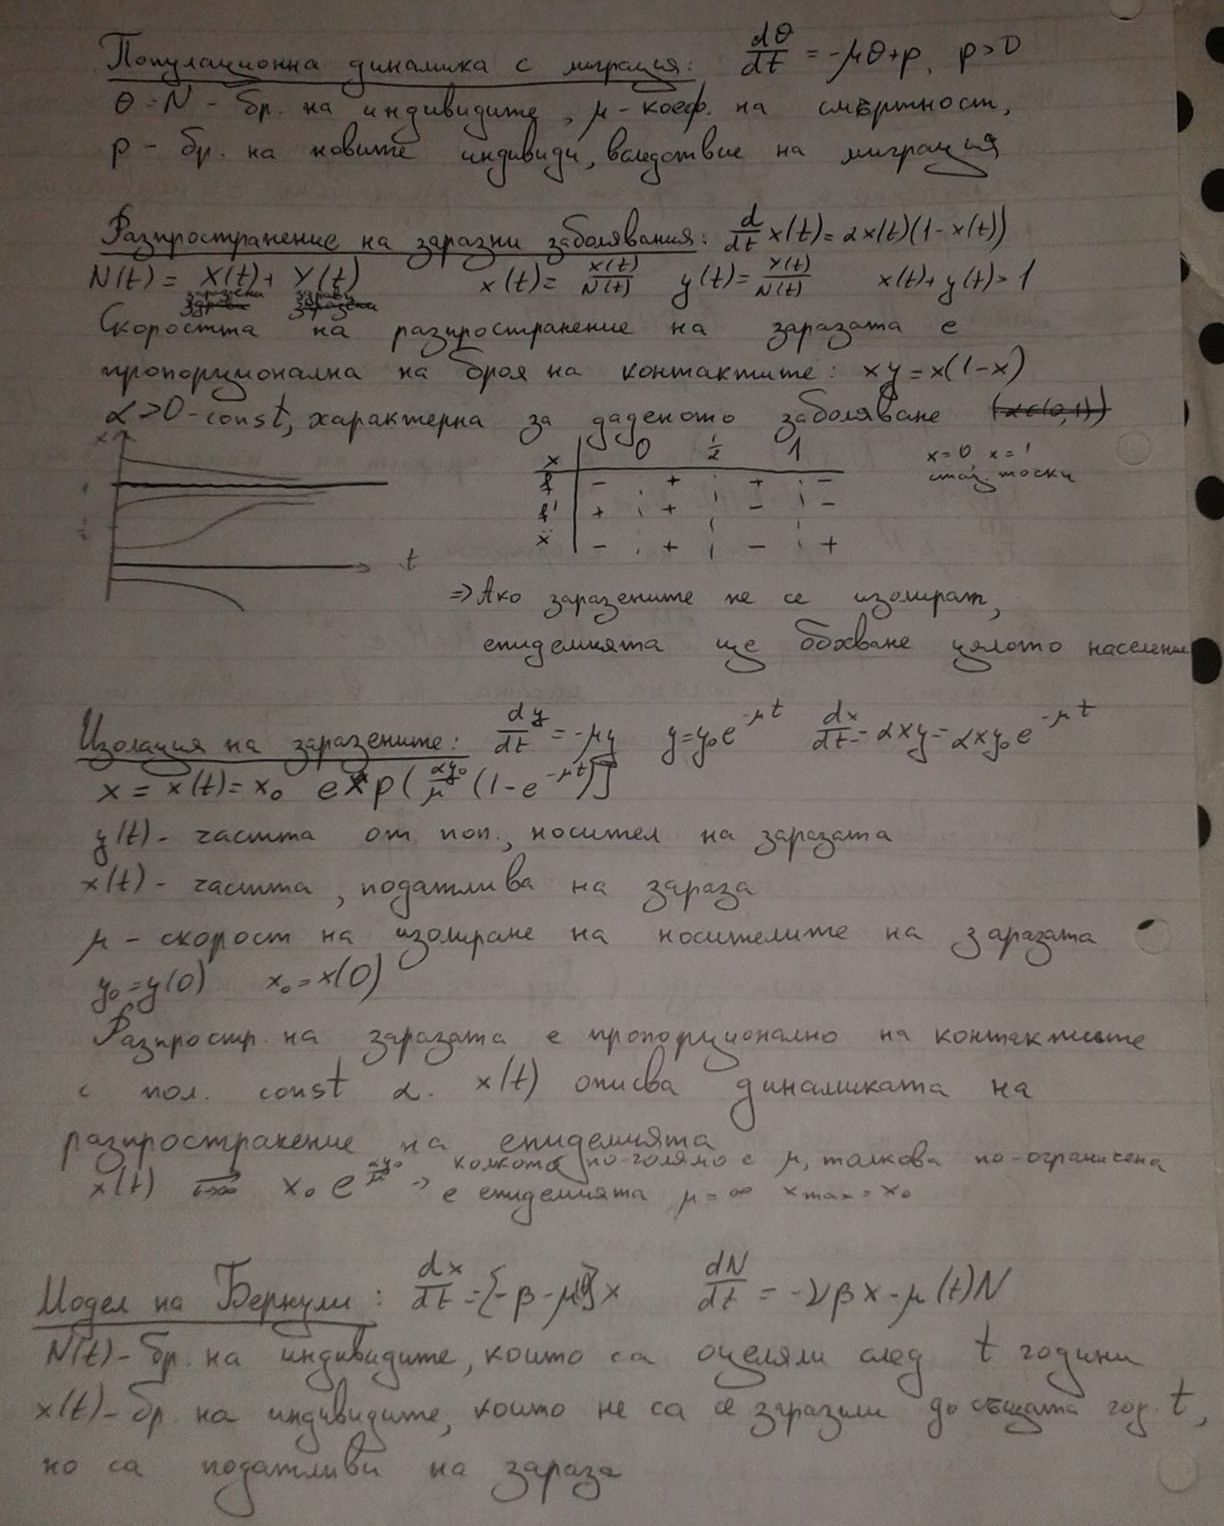 Популационна динамика с миграция: dθ/dt = -μθ+p, p>0
θ=N - бр. на индивидите, μ - коеф. на смъртност,
p - бр. на новите индивиди, вследствие на миграция
Разпространение на заразни заболявания: d/dt x(t) = αx(t)(1-x(t))
N(t) = X(t) + Y(t) x(t) = X(t)/N(t) y(t) = Y(t)/N(t) x(t)+y(t)=1
заразени здрави
здрави заразени
Скоростта на разпространение на заразата е
пропорционална на броя на контактите: xy = x(1-x)
α>0 - const, характерна за даденото заболяване (α∈(0,1))
x 1 1/2 t
x 0 1/2 1 x=0, x=1
f - + + - стац. точки
f' + + - -
ẍ - + - +
=> Ако заразените не се изолират,
епидемията ще обхване цялото население
Изолация на заразените: dy/dt = -μy y=y₀e^-μt dx/dt = αxy = αxy₀e^-μt
x = x(t) = x₀ exp[αy₀/μ (1-e^-μt)]
y(t) - частта от поп., носител на заразата
x(t) - частта, податлива на зараза
μ - скорост на изолиране на носителите на заразата
y₀=y(0) x₀=x(0)
Разпростр. на заразата е пропорционално на контактите
с пол. const α. x(t) описва динамиката на
разпространение на епидемията
x(t) →t→∞ x₀ e^αy₀/μ -> колкото по-голямо е μ, толкова по-ограничена
е епидемията μ=∞ xmax=x₀
Модел на Бернули: dx/dt = [-β-μ(t)]x dN/dt = -νβx-μ(t)N
N(t) - бр. на индивидите, които са оцеляли след t години
x(t) - бр. на индивидите, които не са се заразили до същата год. t,
но са податливи на зараза